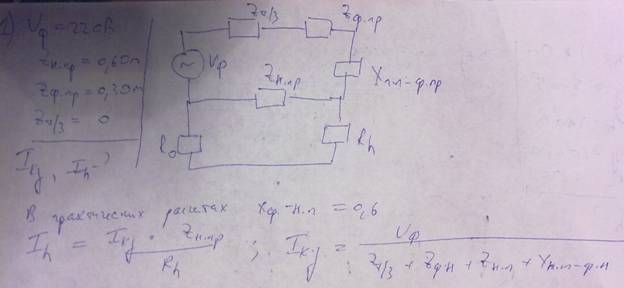 1) Uф = 220В
Zн.пр = 0,6Ом
Zф.пр = 0,3Ом
Zт/3 = 0
Iкз, Ih - ?
Zт/3 Zф.пр
Uф
Zн.пр Xп.п-ф.пр
R₀ Rh
В практических расчетах Xф.-н.п = 0,6
Ih = Iкз · Zн.пр / Rh ; Iкз = Uф / Zт/3 + Zф.п + Zн.п + Xн.п-ф.п